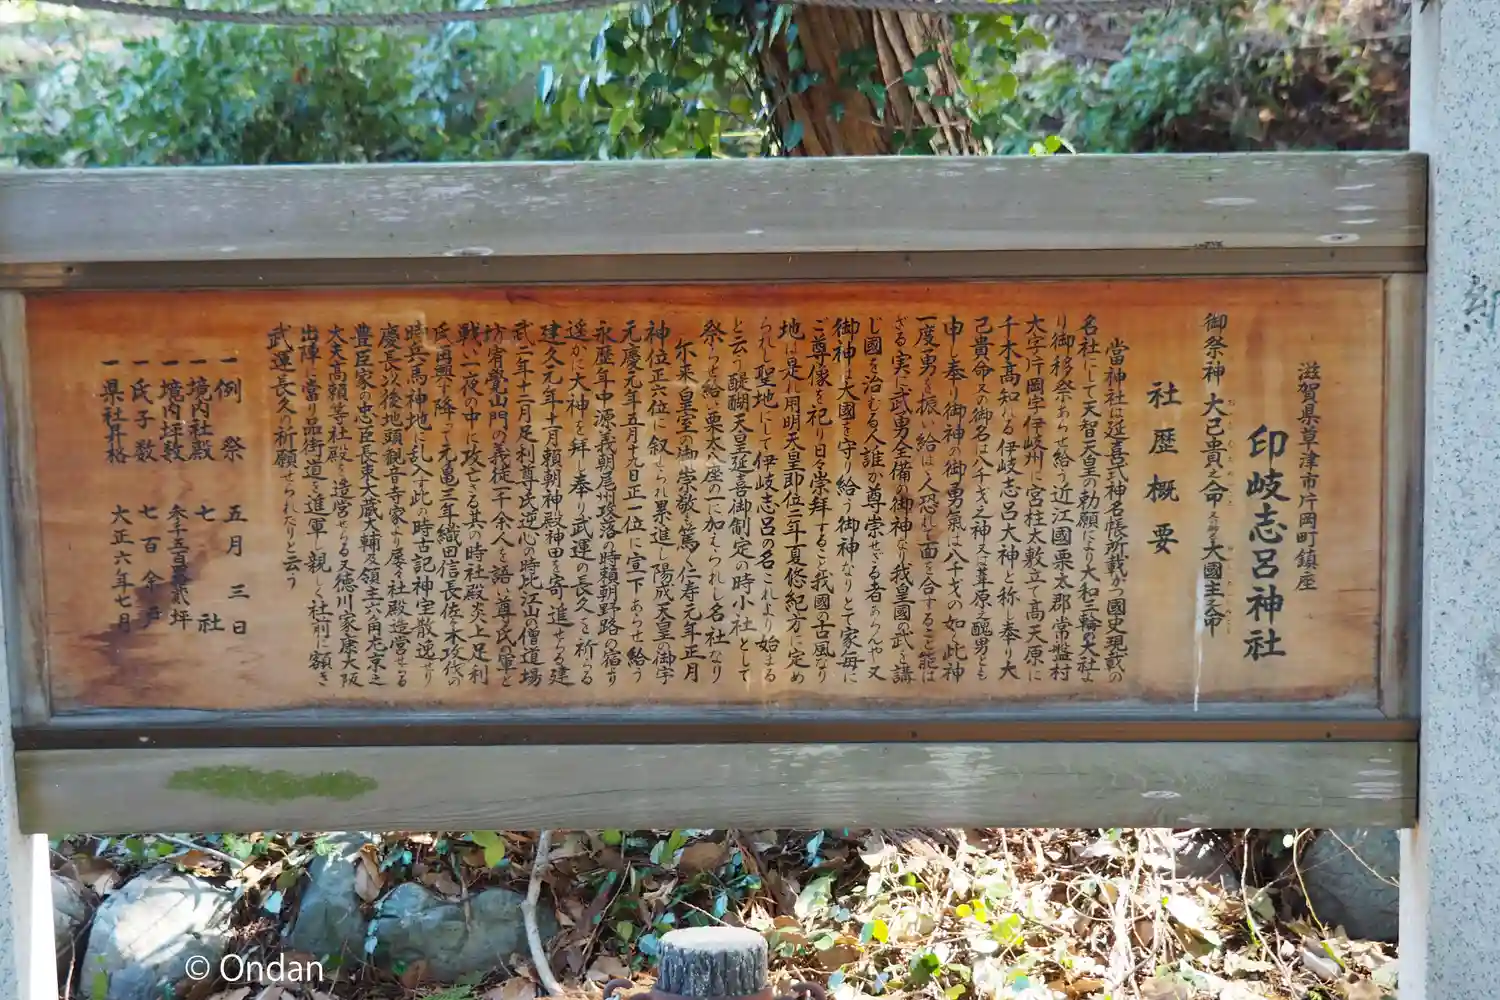 滋賀県草津市片岡町鎮座
印岐志呂神社
御祭神 大己貴之命 又の御名 大國主之命
社歴概要
當神社は延喜式神名帳所載かつ國史現載の
名社にして天智天皇の勅願により大和三輪の大社よ
り御移祭あらせ給う近江國栗太郡常盤村
大字片岡字伊岐州に宮柱太敷立て高天原に
千木高知れる伊岐志呂大神と称し奉り大
己貴命又の御名は八千戈之神又は葦原之醜男とも
申し奉り御神の御勇氣は八千戈の如く此神
一度勇を振い給はば人恐れて面を合すること能は
ざる実に武勇全備の御神なり我皇國の武を講
じ國を治むる人誰か尊崇せざる者あらんや又
御神は大國を守り給う御神なりとて家毎に
ご尊像を祀り日々崇拜すること我國の古風なり
地は是れ用明天皇即位二年夏悠紀方に定め
られし聖地にして伊岐志呂の名これより始まる
と云う醍醐天皇延喜御制定の時小社として
祭らせ給い栗太八座の一に加えられし名社なり
尓来皇室の御崇敬も篤く仁寿元年正月
神位正六位に叙せられ累進し陽成天皇の御宇
元慶元年五月十九日正一位に宣下あらせ給う
永歴年中源義朝尾州攻落の時頼朝野路の宿より
遥かに大神を拜し奉り武運の長久を祈らる
建久元年十月頼朝神殿神田を寄進せらる建
武二年十二月足利尊氏逆心の時比江山の僧道場
坊宥覚山門の義徒一千余人を語い尊氏の軍と
戦い一夜の中に攻亡る其の時社殿炎上足利
氏再興す降って元亀三年織田信長佐々木攻伐の
時兵馬神地に乱入す此の時古記神宝散逸せり
慶長元次後地頭観音寺家より屡々社殿造営せらる
豊臣家の忠臣長束大蔵大輔及領主六角左京之
大夫高頼等社殿を造営せらる又徳川家康大阪
出陣に當り品街道を進軍し親しく社前に額き
武運長久の祈願せられたりと云う
一 例祭 五月三日
一 境内社殿 七社
一 境内坪数 参千五百 弐坪
一 氏子数 七百余戸
一 県社昇格 大正六年七月
© Ondan